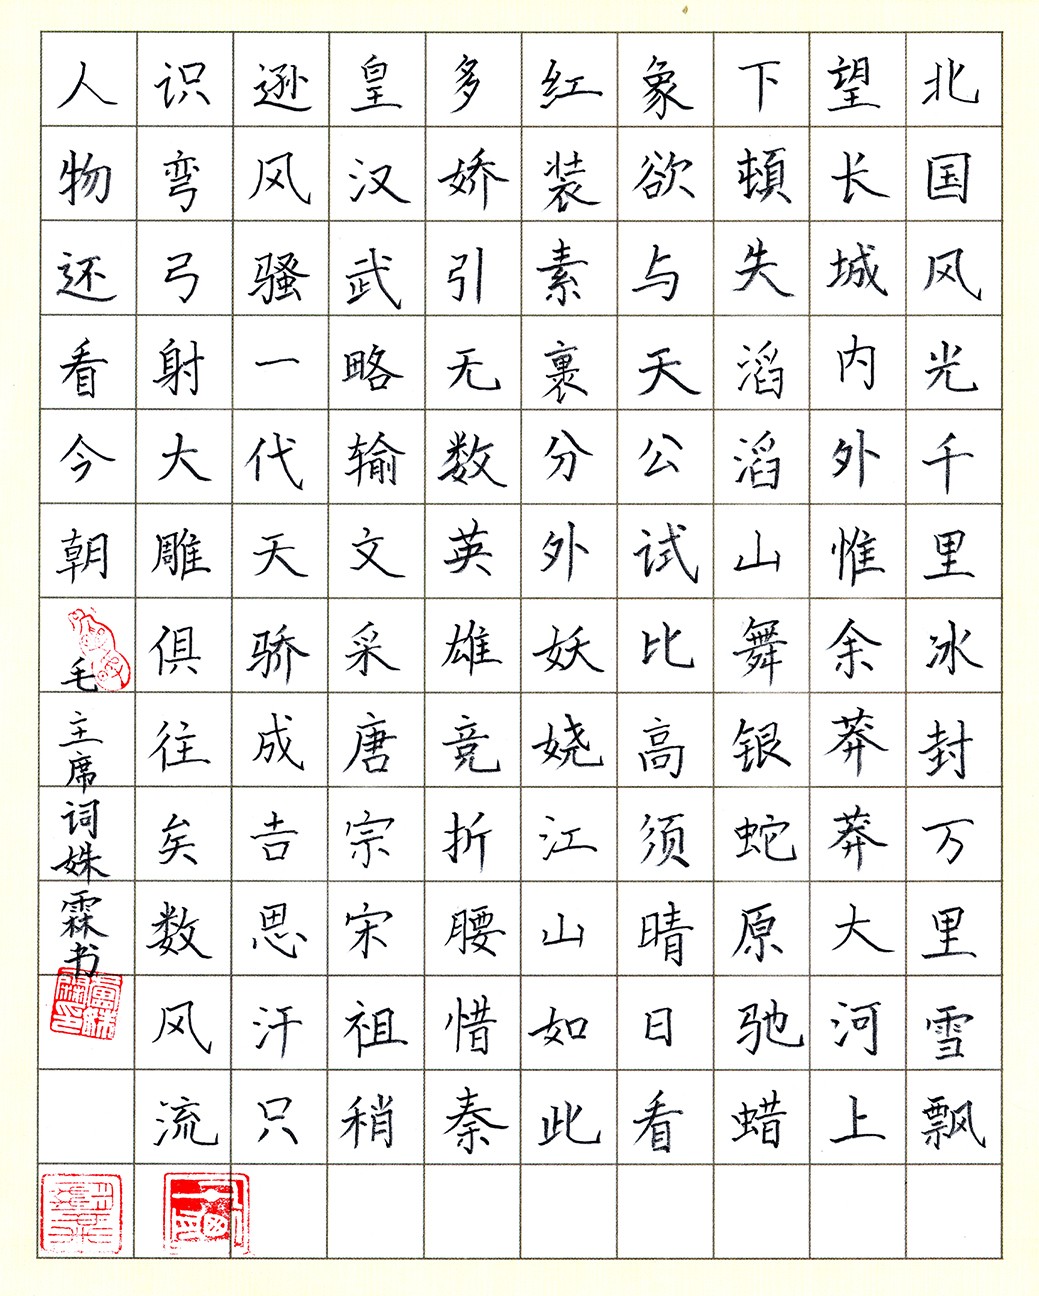 北国风光千里冰封万里雪飘
望长城内外惟余莽莽大河上
下頓失滔滔山舞银蛇原驰蜡
象欲与天公试比高须晴日看
红装素裹分外妖娆江山如此
多娇引无数英雄竞折腰惜秦
皇汉武略输文采唐宗宋祖稍
逊风骚一代天骄成吉思汗只
识弯弓射大雕俱往矣数风流
人物还看今朝
毛主席词姝霖书